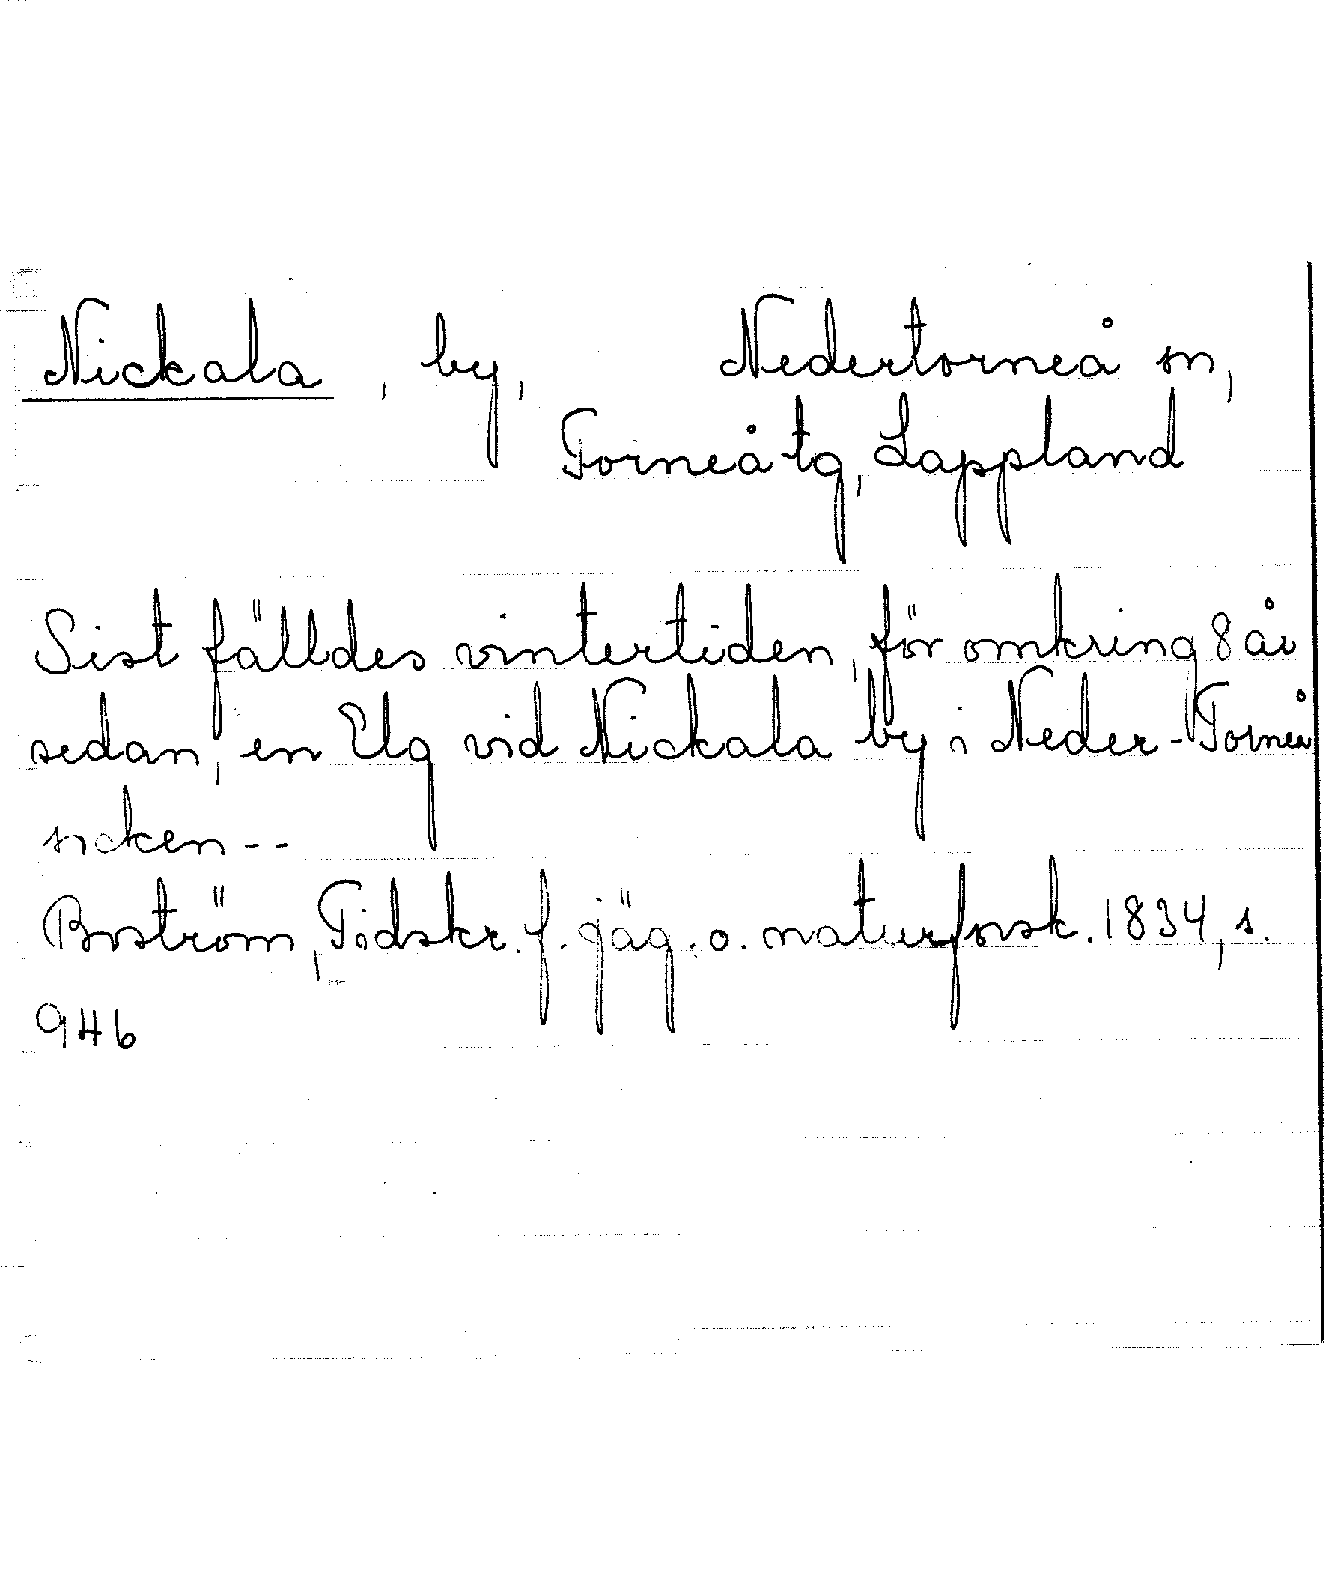 Nickala, by, Nedertorneå sn,
Torneå tg, Lappland
Sist fälldes vintertiden, för omkring 8 år
sedan, en Elg vid Nickala by i Neder-Torneå
socken--
Boström, Tidskr. f. jäg. o. naturforsk. 1834, s.
946